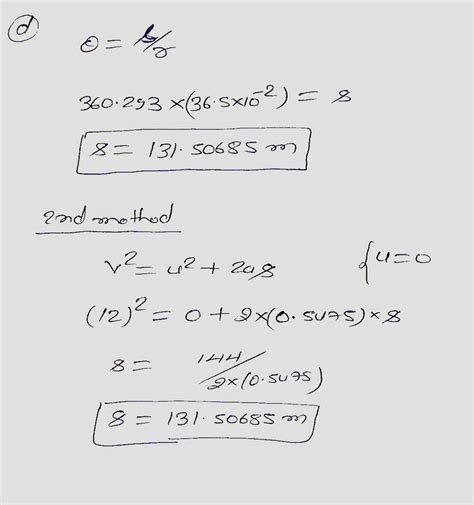 (d)
θ = s/r
360.293 × (36.5×10⁻²) = s
s = 131.50685 m
2nd method
v² = u² + 2as {u=0
(12)² = 0 + 2×(0.5475)×s
s = 144/2×(0.5475)
s = 131.50685 m